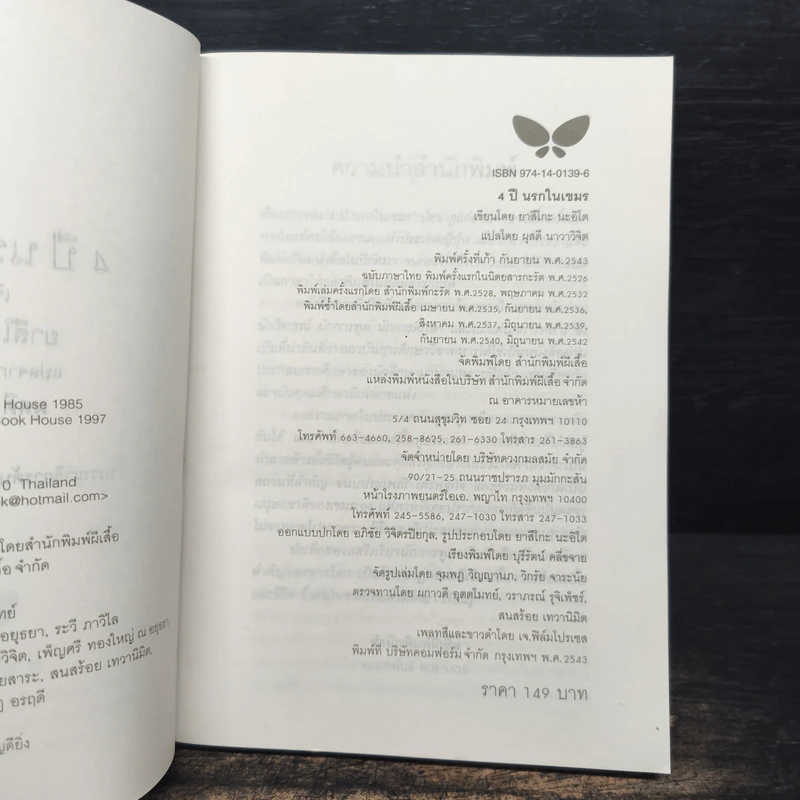 4 ปี นร
ยาสึโ
House 1985
ook House 1997
0 Thailand
k@hotmail.com>
โดยสำนักพิมพ์ผีเสื้อ
ื้อ จำกัด
ทย์
อยุธยา, ระวี ภาวิไล
วิจิต, เพ็ญศรี ทองใหญ่ ณ อยุธยา
ยสาระ, สนสร้อย เทวานิมิต,
อรฤดี
ญดียิ่ง
ISBN 974-14-0139-6
4 ปี นรกในเขมร
เขียนโดย ยาสึโกะ นะอิโต
แปลโดย ผุสดี นาวาวิจิต
พิมพ์ครั้งที่เก้า กันยายน พ.ศ.2543
ฉบับภาษาไทย พิมพ์ครั้งแรกในนิตยสารกะรัต พ.ศ.2526
พิมพ์เล่มครั้งแรกโดย สำนักพิมพ์กะรัต พ.ศ.2528, พฤษภาคม พ.ศ.2532
พิมพ์ซ้ำโดยสำนักพิมพ์ผีเสื้อ เมษายน พ.ศ.2535, กันยายน พ.ศ.2536,
สิงหาคม พ.ศ.2537, มิถุนายน พ.ศ.2539,
กันยายน พ.ศ.2540, มิถุนายน พ.ศ.2542
จัดพิมพ์โดย สำนักพิมพ์ผีเสื้อ
แหล่งพิมพ์หนังสือในบริษัท สำนักพิมพ์ผีเสื้อ จำกัด
ณ อาคารหมายเลขห้า
5/4 ถนนสุขุมวิท ซอย 24 กรุงเทพฯ 10110
โทรศัพท์ 663-4660, 258-8625, 261-6330 โทรสาร 261-3863
จัดจำหน่ายโดย บริษัทดวงกมลสมัย จำกัด
90/21-25 ถนนราชปรารภ มุมมักกะสัน
หน้าโรงภาพยนตร์โอเอ. พญาไท กรุงเทพฯ 10400
โทรศัพท์ 245-5586, 247-1030 โทรสาร 247-1033
ออกแบบปกโดย อภิชัย วิจิตรปิยกุล, รูปประกอบโดย ยาสึโกะ นะอิโต
เรียงพิมพ์โดย บุรีรัตน์ คลี่ขจาย
จัดรูปเล่มโดย จุมพฏ วิญญานภ, วิกรัย จาระนัย
ตรวจทานโดย ผกาวดี อุตตโมทย์, วราภรณ์ รุจิเพ็ชร์,
สนสร้อย เทวานิมิต
เพลทสีและขาวดำโดย เจ.ฟิล์มโปรเซส
พิมพ์ที่ บริษัทคอมฟอร์ม จำกัด กรุงเทพฯ พ.ศ.2543
ราคา 149 บาท